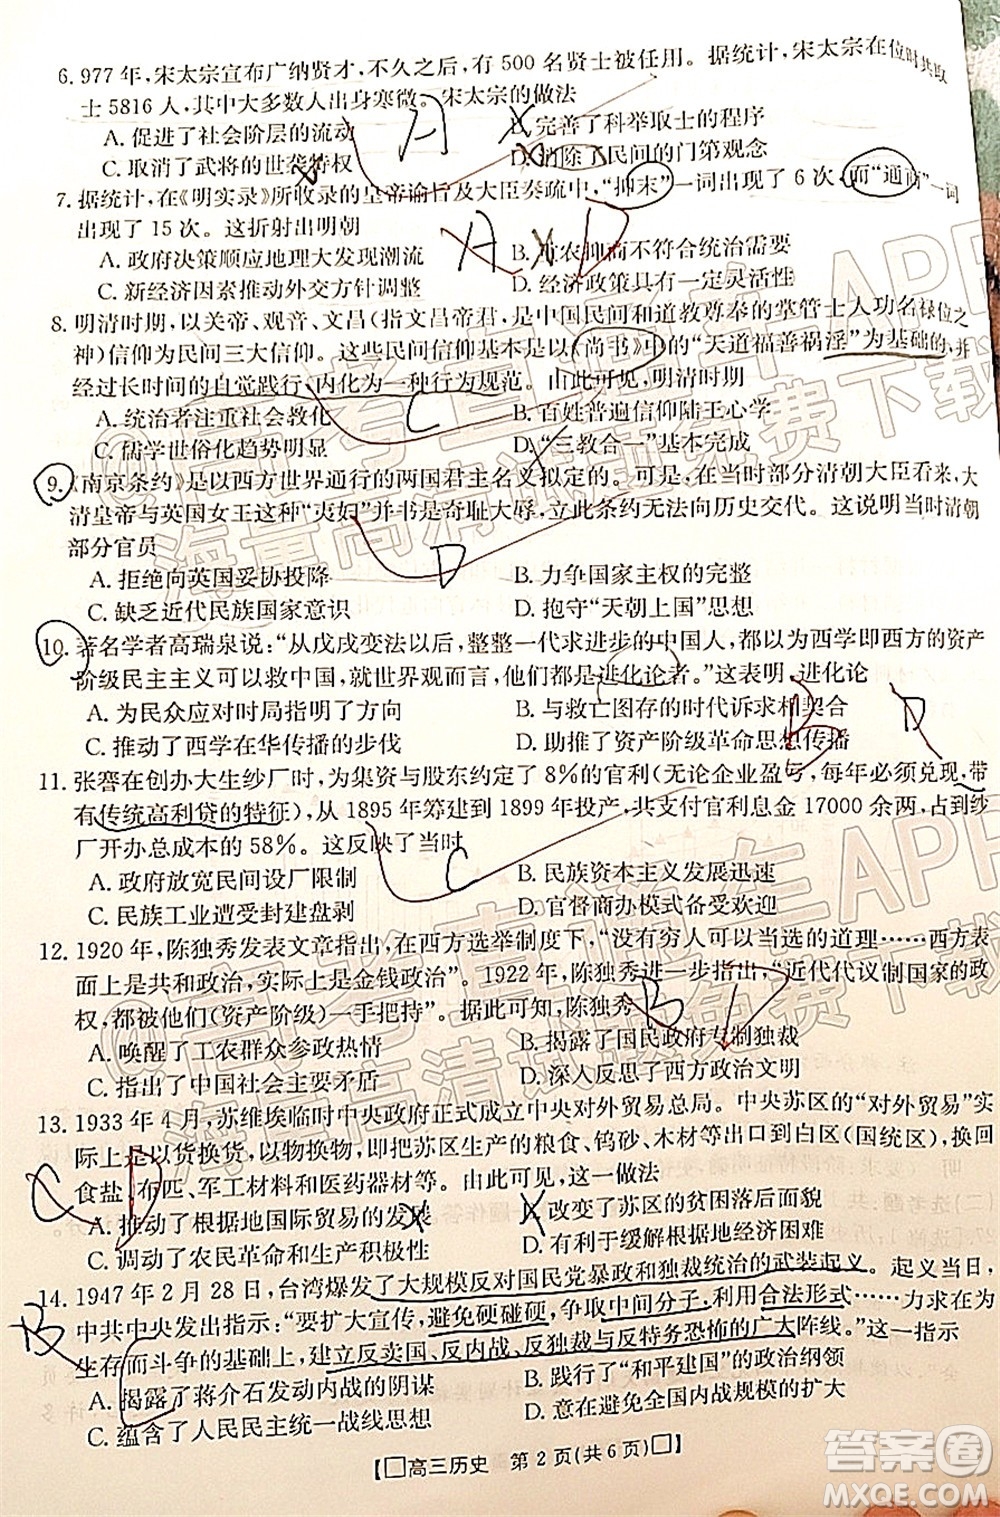 6. 977 年,宋太宗宣布广纳贤才,不久之后,有 500 名贤士被任用。据统计,宋太宗在位时共取
士 5816 人,其中大多数人出身寒微。宋太宗的做法
A. 促进了社会阶层的流动 B. 完善了科举取士的程序
C. 取消了武将的世袭特权 D. 消除了民间的门第观念
7. 据统计,在《明实录》所收录的皇帝谕旨及大臣奏疏中,“抑末”一词出现了 6 次,而“通商”一词
出现了 15 次。这折射出明朝
A. 政府决策顺应地理大发现潮流 B. 重农抑商不符合统治需要
C. 新经济因素推动外交方针调整 D. 经济政策具有一定灵活性
8. 明清时期,以关帝、观音、文昌(指文昌帝君,是中国民间和道教尊奉的掌管士人功名禄位之
神)信仰为民间三大信仰。这些民间信仰基本是以《尚书》中的“天道福善祸淫”为基础的,并
经过长时间的自觉践行、内化为一种行为规范。由此可见,明清时期
A. 统治者注重社会教化 B. 百姓普遍信仰陆王心学
C. 儒学世俗化趋势明显 D. “三教合一”基本完成
9. 《南京条约》是以西方世界通行的两国君主名义拟定的。可是,在当时部分清朝大臣看来,大
清皇帝与英国女王这种“夷妇”并书是奇耻大辱,立此条约无法向历史交代。这说明当时清朝
部分官员
A. 拒绝向英国妥协投降 B. 力争国家主权的完整
C. 缺乏近代民族国家意识 D. 抱守“天朝上国”思想
10. 著名学者高瑞泉说:“从戊戌变法以后,整整一代求进步的中国人,都以为西学即西方的资产
阶级民主主义可以救中国,就世界观而言,他们都是进化论者。”这表明,进化论
A. 为民众应对时局指明了方向 B. 与救亡图存的时代诉求相契合
C. 推动了西学在华传播的步伐 D. 助推了资产阶级革命思想传播
11. 张謇在创办大生纱厂时,为集资与股东约定了 8%的官利(无论企业盈亏,每年必须兑现,带
有传统高利贷的特征),从 1895 年筹建到 1899 年投产,共支付官利息金 17000 余两,占到纱
厂开办总成本的 58%。这反映了当时
A. 政府放宽民间设厂限制 B. 民族资本主义发展迅速
C. 民族工业遭受封建盘剥 D. 官督商办模式备受欢迎
12. 1920 年,陈独秀发表文章指出,在西方选举制度下,“没有穷人可以当选的道理……西方表
面上是共和政治,实际上是金钱政治”。1922 年,陈独秀进一步指出,“近代代议制国家的政
权,都被他们(资产阶级)一手把持”。据此可知,陈独秀
A. 唤醒了工农群众参政热情 B. 揭露了国民政府专制独裁
C. 指出了中国社会主要矛盾 D. 深入反思了西方政治文明
13. 1933 年 4 月,苏维埃临时中央政府正式成立中央对外贸易总局。中央苏区的“对外贸易”实
际上是以货换货,以物换物,即把苏区生产的粮食、钨砂、木材等出口到白区(国统区),换回
食盐、布匹、军工材料和医药器材等。由此可见,这一做法
A. 推动了根据地国际贸易的发展 B. 改变了苏区的贫困落后面貌
C. 调动了农民革命和生产积极性 D. 有利于缓解根据地经济困难
14. 1947 年 2 月 28 日,台湾爆发了大规模反对国民党暴政和独裁统治的武装起义。起义后,
中共中央发出指示:“要扩大宣传,避免硬碰硬,争取中间分子,利用合法形式……力求在
生存而斗争的基础上,建立反卖国、反内战、反独裁与反特务恐怖的广大阵线。”这一指示
A. 揭露了蒋介石发动内战的阴谋 B. 践行了“和平建国”的政治纲领
C. 蕴含了人民民主统一战线思想 D. 意在避免全国内战规模的扩大
【高三历史 第 2 页(共 6 页)】
答案圈
MXQE.COM